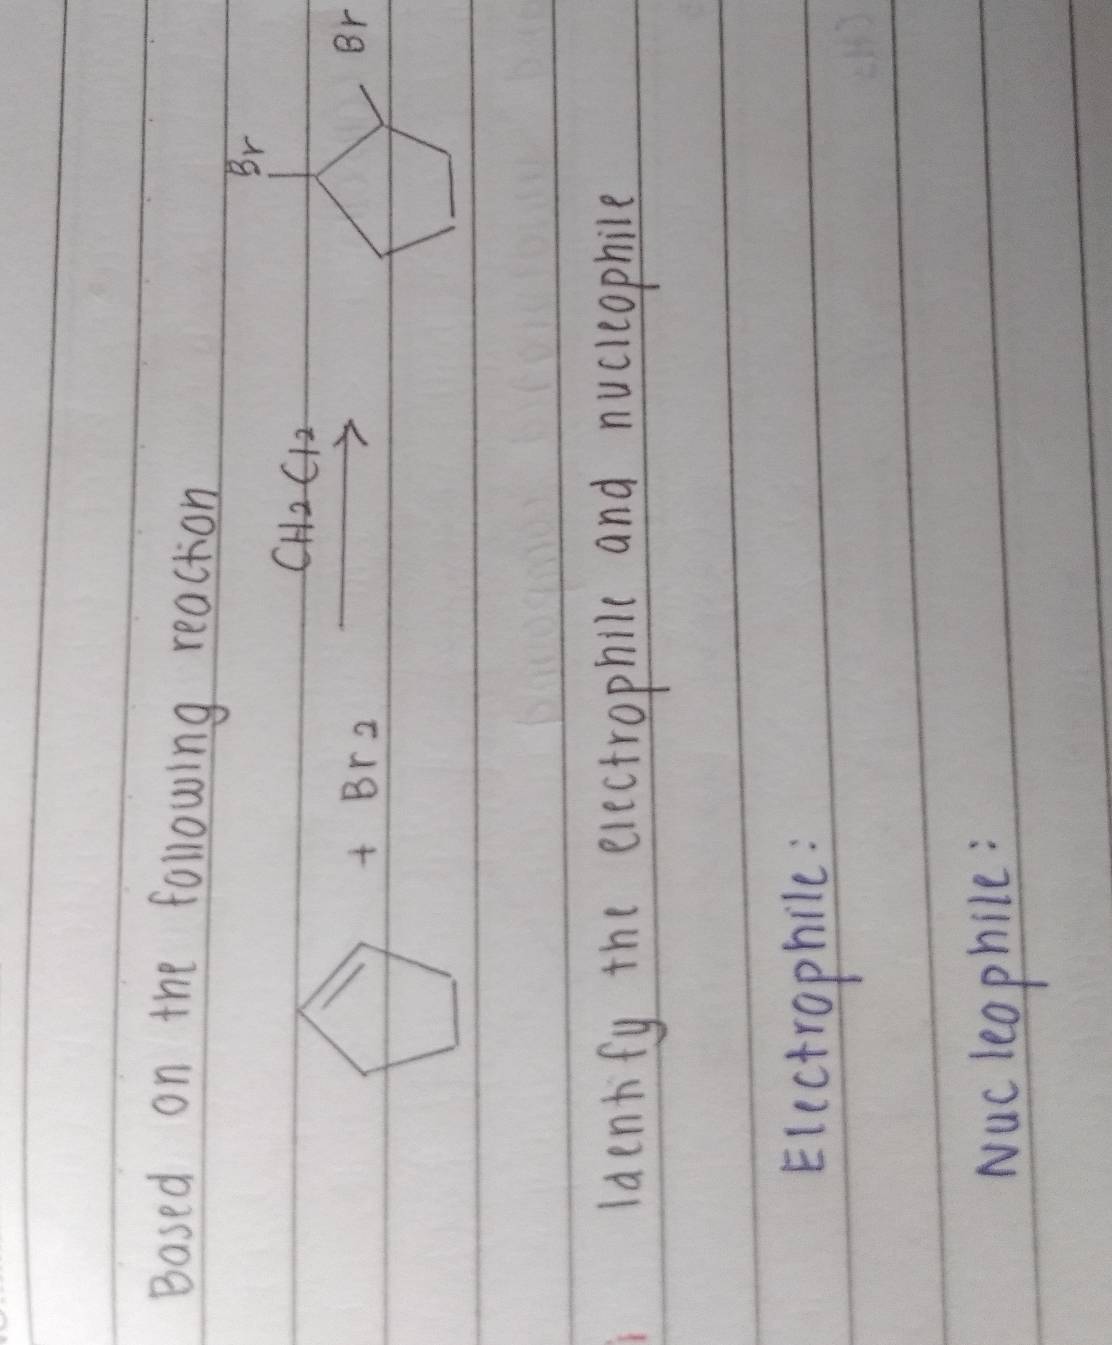 Based on the following reaction
Br
CH2Cl2
+ Br2
Br
Identify the electrophile and nucleophile
Electrophile:
Nucleophile: